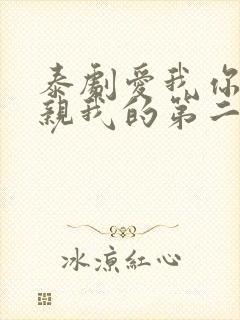 泰劇愛我你
親我的第二
冰涼紅心